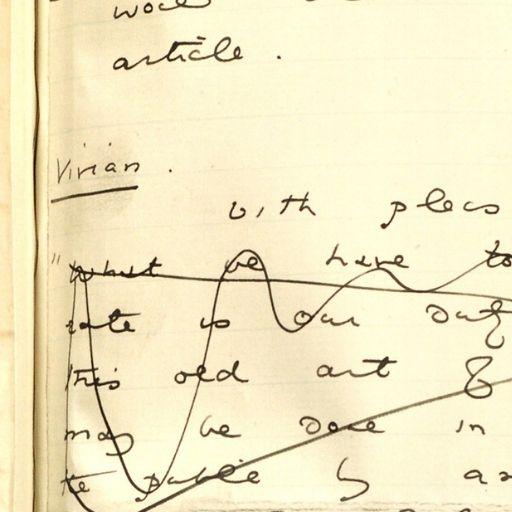 article .
Vivian .
with pleas
"What we have to
rate is our duty
this old art of
may be done in
the public by